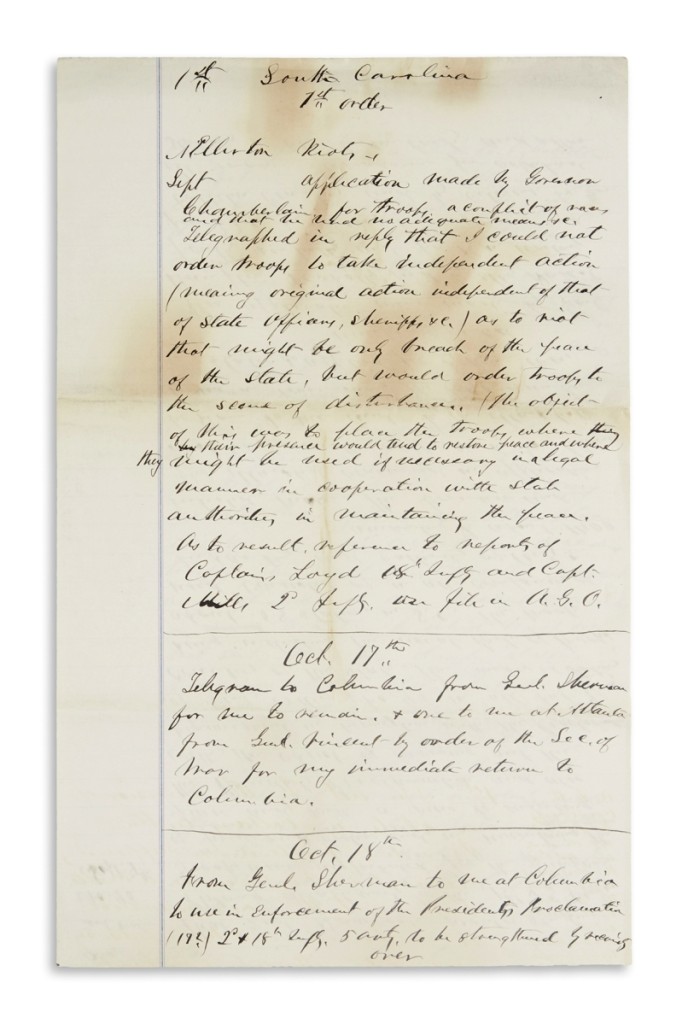 1st South Carolina
1st order
Ellerton Riots
Sept application made by Governor
Chamberlain for troops, a conflict of races
and that he had no adequate means &c.
Telegraphed in reply that I could not
order troops to take independent action
(meaing original action independent of that
of State Officers, sheriffs &c.) as to riot
that might be only breach of the peace
of the State, but would order troops to
the scene of disturbance. (The object
of this was to place the troops where they
their presence would tend to restore peace and where
they might be used if necessary in a legal
manner in cooperation with State
authorities in maintaining the peace.
As to result, reference to reports of
Captains Loyd 18th Infty and Capt.
Mills 2d Infty. on file in A.G.O.
Oct. 17th
Telegram to Columbia from Genl. Sherman
for me to remain, & one to me at Atlanta
from Genl. Vincent by order of the Sec. of
War for my immediate return to
Columbia.
Oct. 18th
From Genl. Sherman to me at Columbia
to use in enforcement of the Presidents Proclamation
(17?) 2d & 18th Infty. 5 Arty. to be strengthened by
over